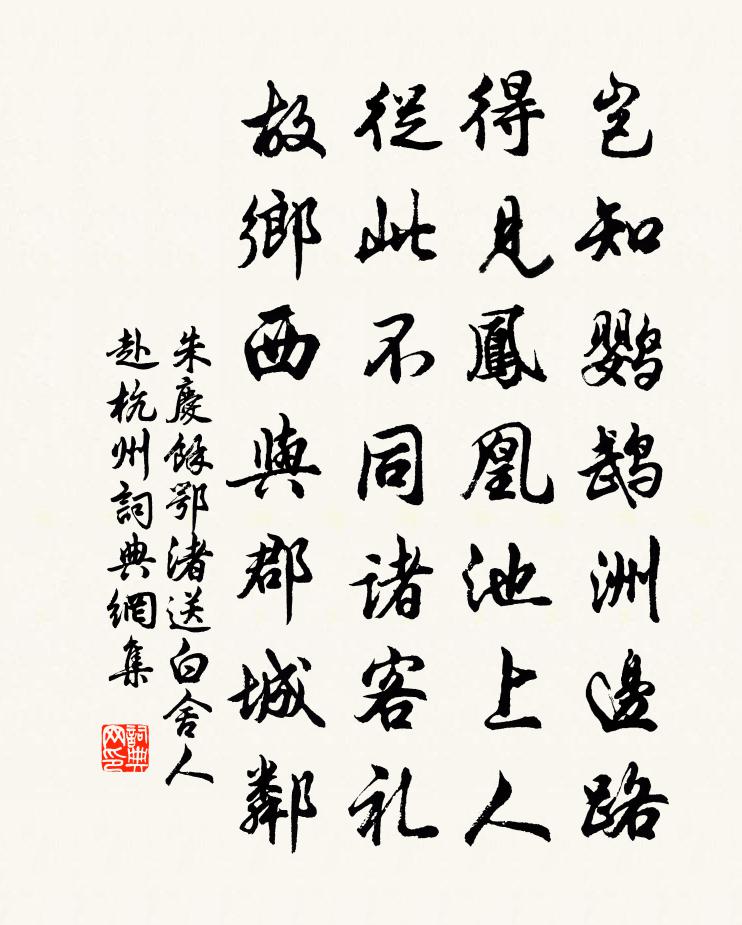 豈知鸚鵡洲邊路
得見鳳凰池上人
從此不同諸客礼
故鄉西與郡城鄰
朱慶餘鄂渚送白舍人
赴杭州詞典網集
詞典网印